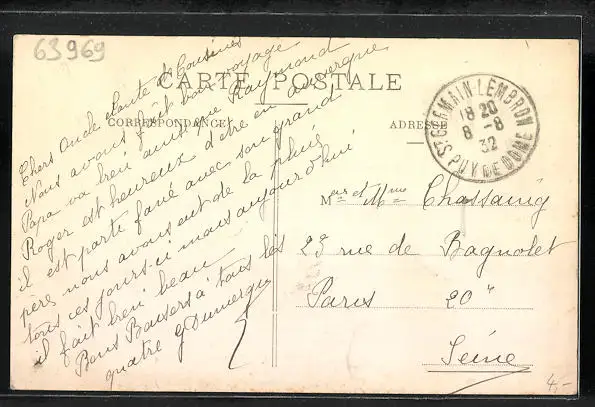 63969
CARTE POSTALE
CORRESPONDANCE
ADRESSE
Chers Oncle Tante & Cousines
Nous avons fait bon voyage
Papa va bien ainsi que Raymond
Roger est heureux d'être en auvergne
il est parti fané avec son grand
père nous avons eut de la pluie
tous ces jours-ci mais aujourd'hui
il fait bien beau
Bons Baisers à tous les
quatre G Dumergue
ST GERMAIN-LEMBRON
18 20
8 -8
32
PUY DE DOME
Mr et Mme Chassaing
23 rue de Bagnolet
Paris 20e
Seine
4,-